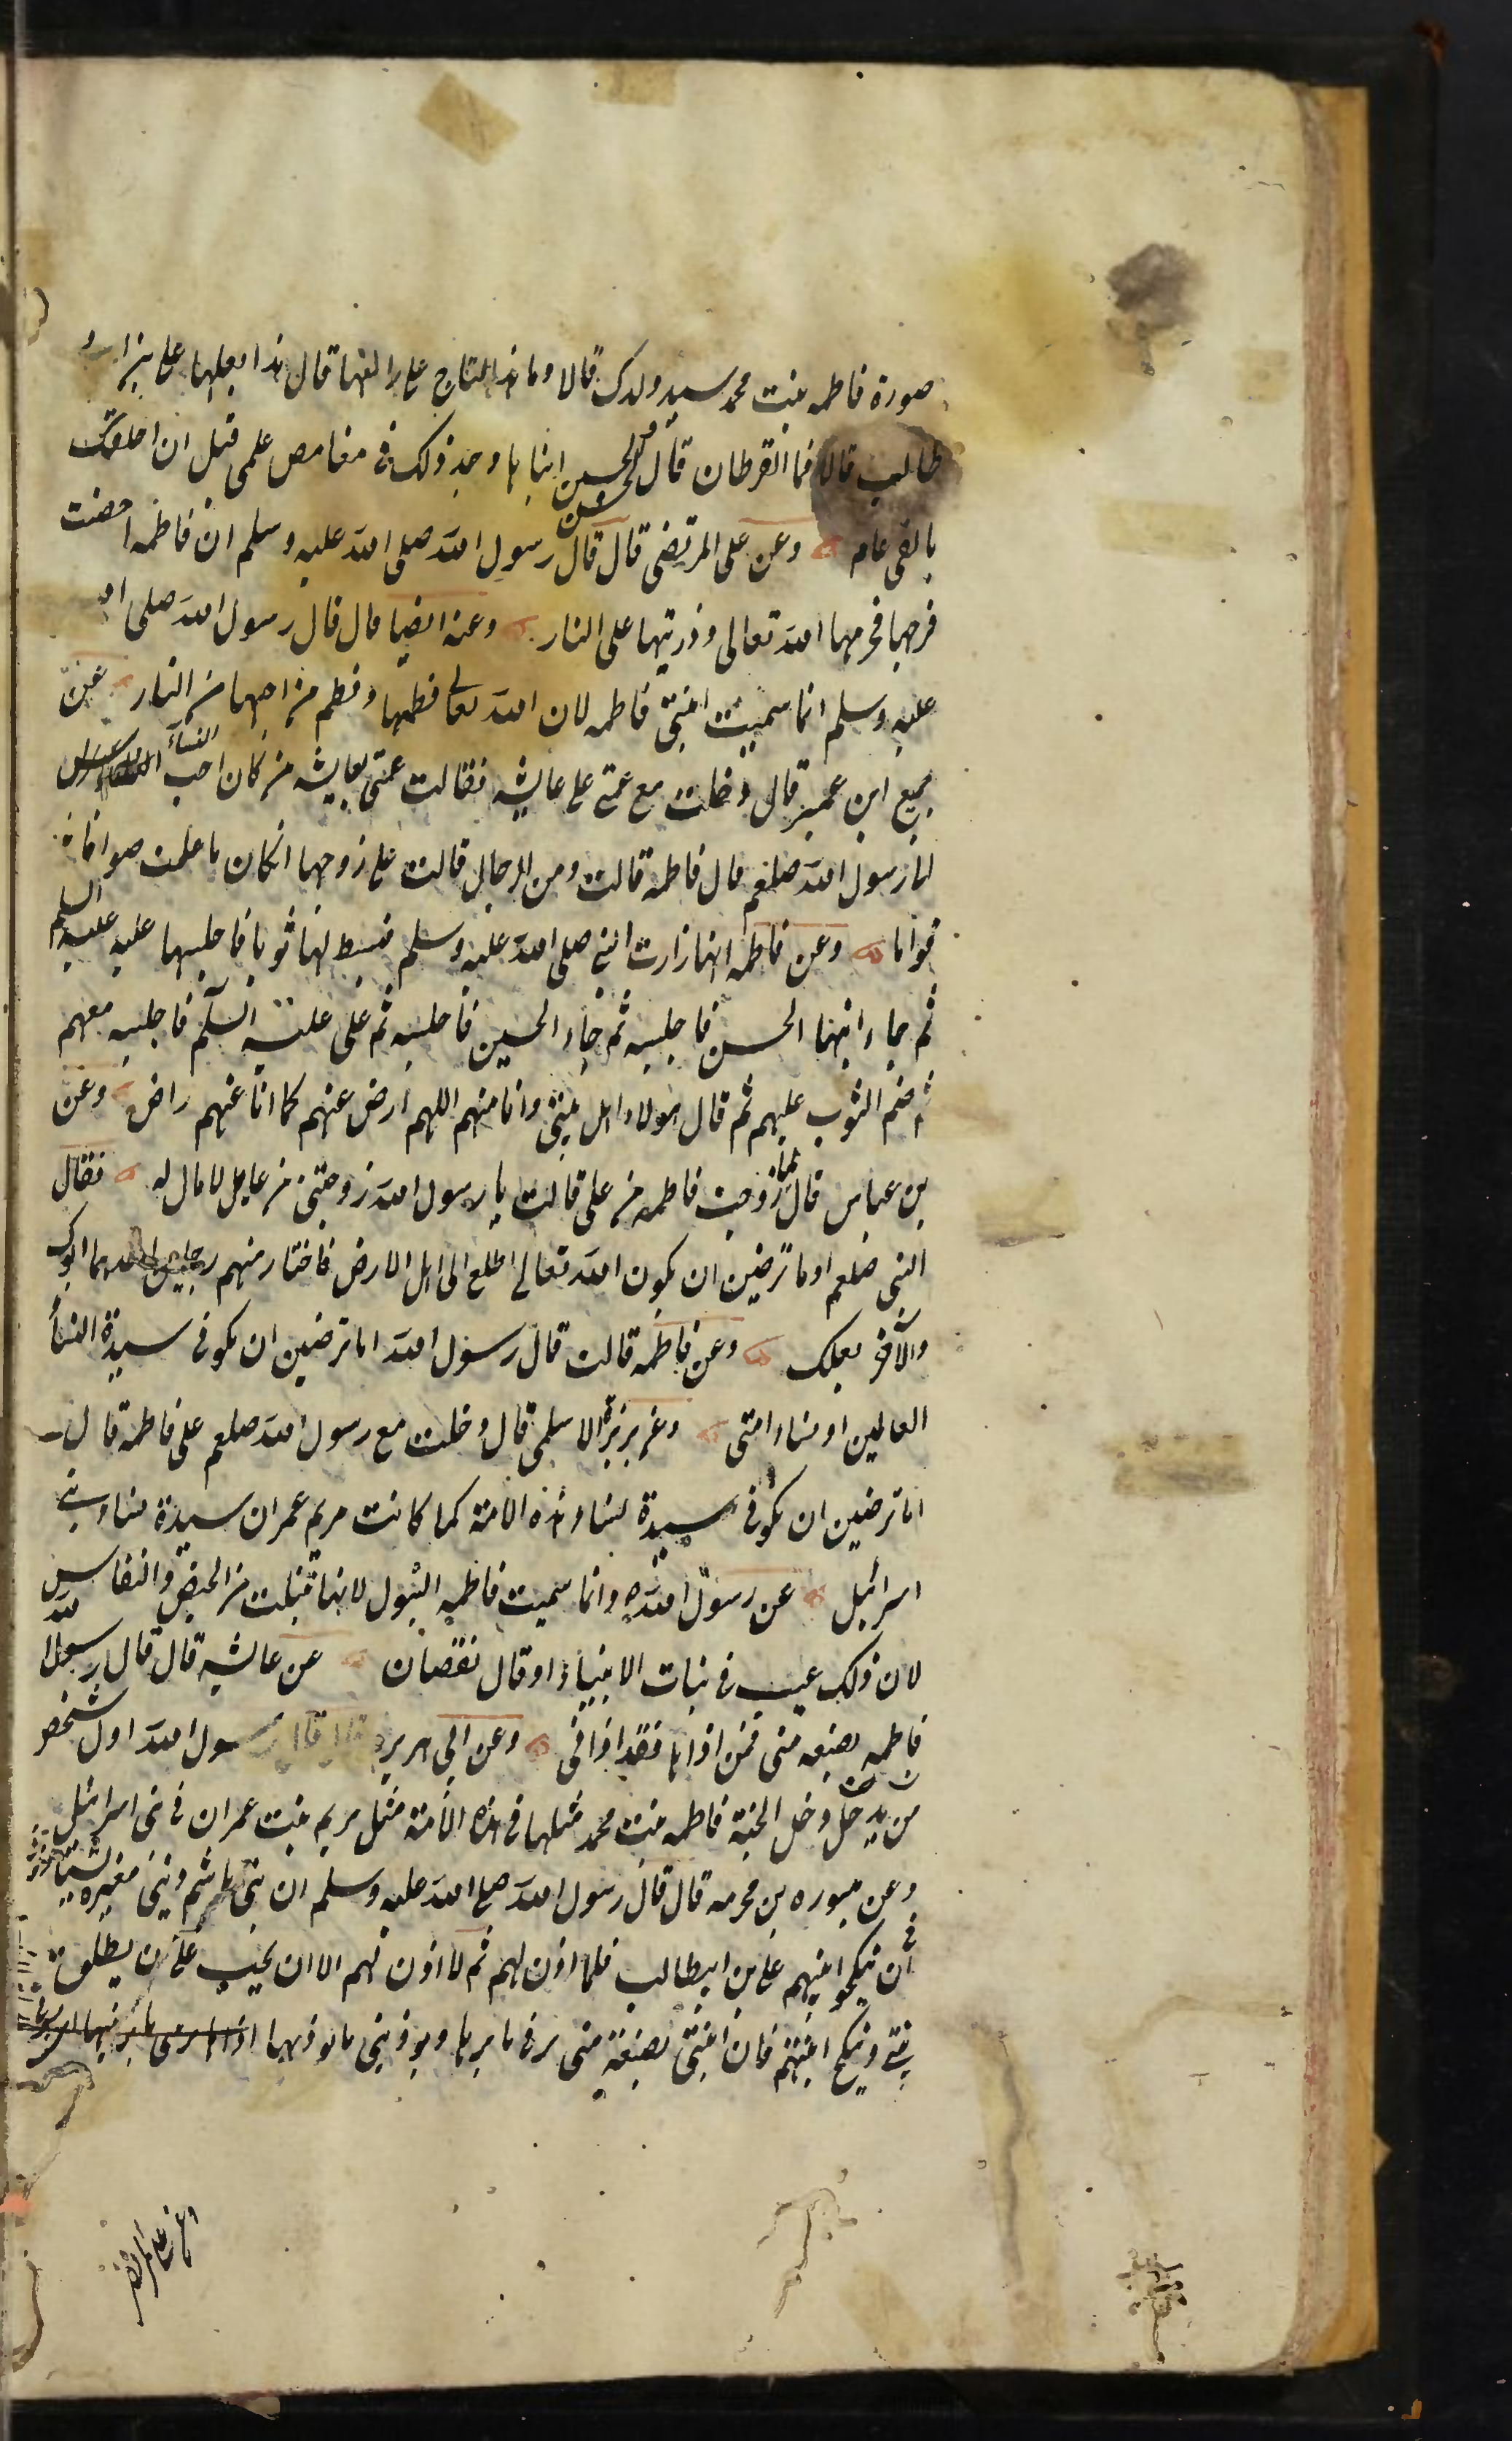 صورة فاطمه بنت محمد سيد ولدك قالا وما هذا التاج على راسها قال هذا بعلها على بن ابى
طالب قالا فما القرطان قال الحسن والحسين ابناها وجد ذلك فى غامض علمى قبل ان اخلقك
بالفى عام وعن على المرتضى قال قال رسول الله صلى الله عليه وسلم ان فاطمه احصنت
فرجها فحرمها الله تعالى وذريتها على النار وعنه ايضا قال قال رسول الله صلى الله
عليه وسلم انما سميت ابنتى فاطمه لان الله تعالى فطمها وفطم من احبها من النار عن
جميع ابن عمير قال دخلت مع عمتى على عايشه فقالت عمتى لعايشه من كان احب النساء
الى رسول الله صلعم قال فاطمه قالت ومن الرجال قالت على زوجها ان كان ما علمت صواما
قواما وعن فاطمه انها زارت النبى صلى الله عليه وسلم فبسط لها ثوبا فاجلسها عليه عليه السلم
ثم جاء ابنها الحسن فاجلسه ثم جاء الحسين فاجلسه ثم على عليه السلم فاجلسه معهم
ثم ضم الثوب عليهم ثم قال هولاء اهل بيتى وانا منهم اللهم ارض عنهم كما انا عنهم راض وعن
بن عباس قال لما زوجت فاطمه من على قالت يا رسول الله زوجتنى من عايل لا مال له فقال
النبى صلعم اوما ترضين ان يكون الله تعالى اطلع الى اهل الارض فاختار منهم رجلين احدهما ابوك
والآخر بعلك وعن فاطمه قالت قال رسول الله اما ترضين ان تكونى سيدة النساء
العالمين او نساء امتى وعن بريزة الاسلمى قال دخلت مع رسول الله صلعم على فاطمه قال
اما ترضين ان تكونى سيدة نساء هذه الامة كما كانت مريم عمران سيدة نساء بنى
اسرائيل عن رسول الله وانما سميت فاطمه البتول لانها تبتلت من الحيض والنفاس
لان ذلك عيب فى بنات الانبياء او قال نقصان عن عايشه قال قال رسول الله
فاطمه بضعه منى فمن اذاها فقد اذانى وعن ابى هريره قال قال رسول الله اول شخص
من يدخل دخل الجنة فاطمه بنت محمد مثلها فى هذه الامة مثل مريم بنت عمران فى بنى اسرائيل
وعن مسوره بن مخرمه قال قال رسول الله صلى الله عليه وسلم ان بنى هاشم وبنى مغيره
فى ان ينكحوا ابنتهم على بن ابيطالب فلما اذن لهم ثم لا اذن لهم الا ان يحب على ان يطلق
بنتى وينكح ابنتهم فان ابنتى بضعة منى يربنى ما يربها ويوذينى ما يوذيها